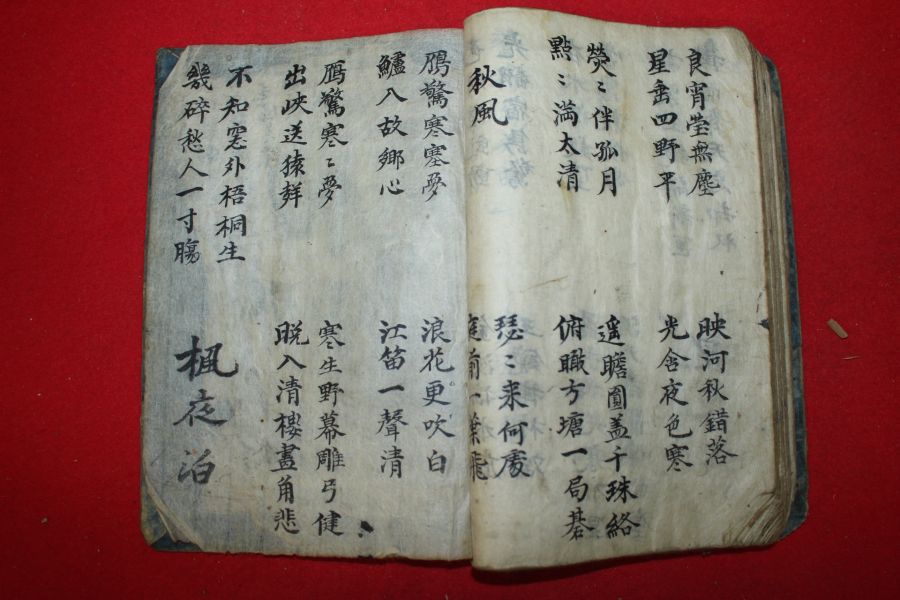 良宵瑩無塵
星垂四野平
映河秋錯落
光含夜色寒
熒〻伴孤月
點〻滿太清
遙瞻圓盖千珠絡
俯瞰方塘一局碁
秋風
瑟〻来何處
庭前一葉飛
鴈驚寒塞夢
鱸入故鄉心
浪花更吹白
江笛一聲清
鴈驚寒〻夢
出峽送猿群
寒生野幕雕弓健
晩入清樓畫角悲
不知窓外梧桐生
幾碎愁人一寸膓
楓夜泊